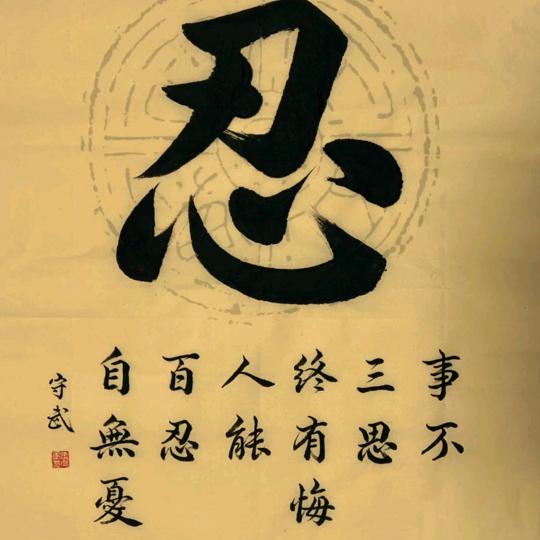 忍
事不
三思
終有悔
人能
百忍
自無憂
守武